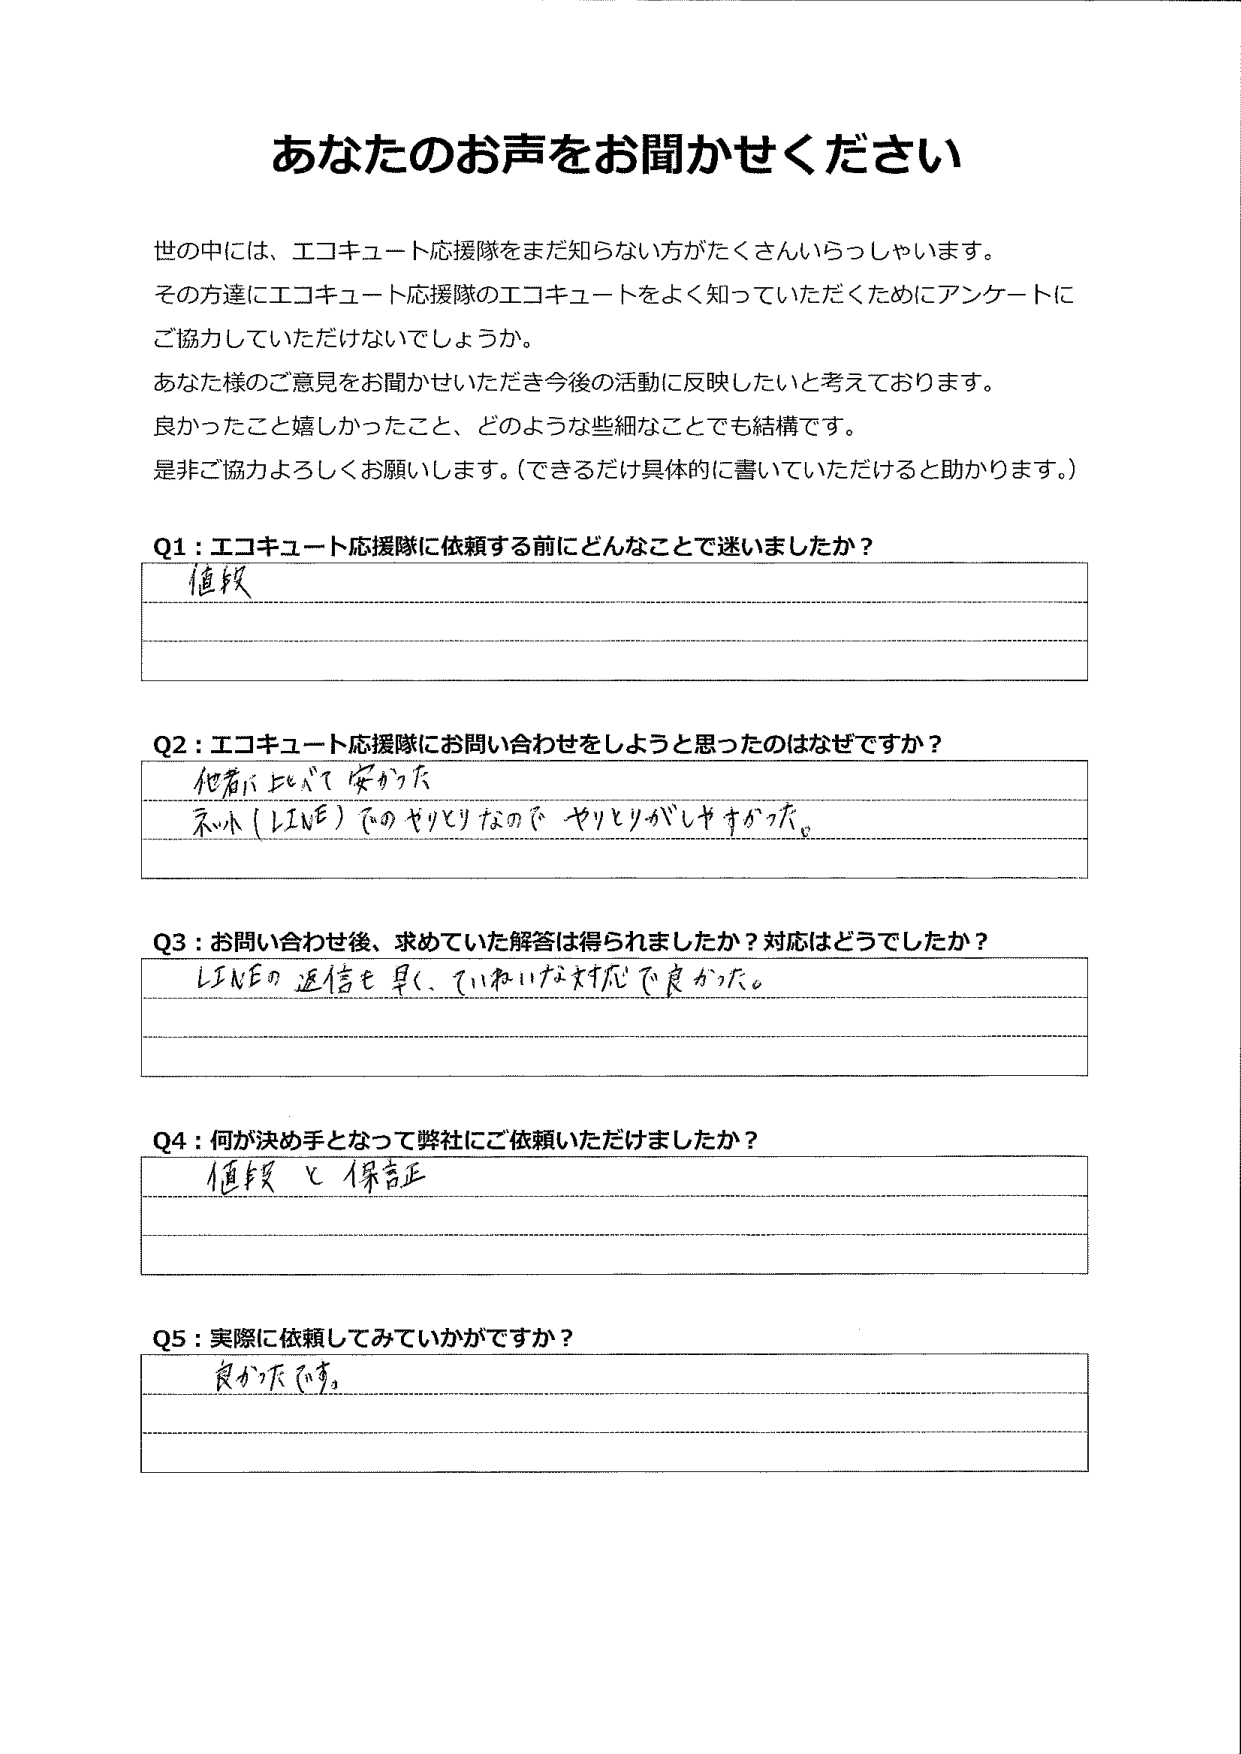 あなたのお声をお聞かせください
世の中には、エコキュート応援隊をまだ知らない方がたくさんいらっしゃいます。
その方達にエコキュート応援隊のエコキュートをよく知っていただくためにアンケートに
ご協力していただけないでしょうか。
あなた様のご意見をお聞かせいただき今後の活動に反映したいと考えております。
良かったこと嬉しかったこと、どのような些細なことでも結構です。
是非ご協力よろしくお願いします。(できるだけ具体的に書いていただけると助かります。)
Q1：エコキュート応援隊に依頼する前にどんなことで迷いましたか？
値段
Q2：エコキュート応援隊にお問い合わせをしようと思ったのはなぜですか？
他者に比べて安かった
ネット(LINE)でのやりとりなので やりとりがしやすかった。
Q3：お問い合わせ後、求めていた解答は得られましたか？対応はどうでしたか？
LINEの返信も早く、ていねいな対応で良かった。
Q4：何が決め手となって弊社にご依頼いただけましたか？
値段 と 保証
Q5：実際に依頼してみていかがですか？
良かったです。